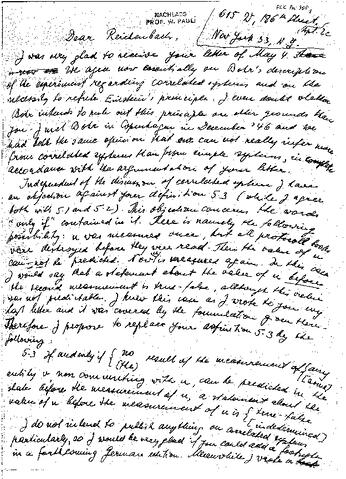 NACHLASS
PROF. W. PAULI
615 W, 186th Street,
New York 33, N.Y.
Dear Reichenbach,
I was very glad to receive your letter of May 4.
We agree now essentially on Bohr's description
of the experiment regarding correlated systems and on the
necessity to refute Einstein's principle. I even doubt whether
Bohr intends to rule out this principle on other grounds than
you. I met Bohr in Copenhagen in December '46 and we
had both the same opinion that one can not really infer more
from correlated systems than from simple systems, in complete
accordance with the argumentation of your letter.
Independent of the discussion of correlated systems I have
an objection against your definition 5.3 (while I agree
both with 5.1 and 5.2). This objection concerns the words
"only if" contained in it. There is namely the following
possibility: u was measured once but all protocols
were destroyed before they were read. Then the value of u
can not be predicted. Now u is measured again. In this case
I would say that a statement about the value of u before
the second measurement is true-false, although this value
was not predictable. I knew this case as I wrote to you my
last letter and it was covered by the formulation given there.
Therefore I propose to replace your definition 5.3 by the
following
5.3 If and only if { no (the) result of the measurement of { any (some)
entity v non commuting with u, can be predicted in the
state before the measurement of u, a statement about the
value of u before the measurement of u is { true-false (indeterminate)
I do not intend to publish anything on correlated systems
particularly, so I would be very glad if you could add a footnote
in a forthcoming German edition. Meanwhile I wrote a